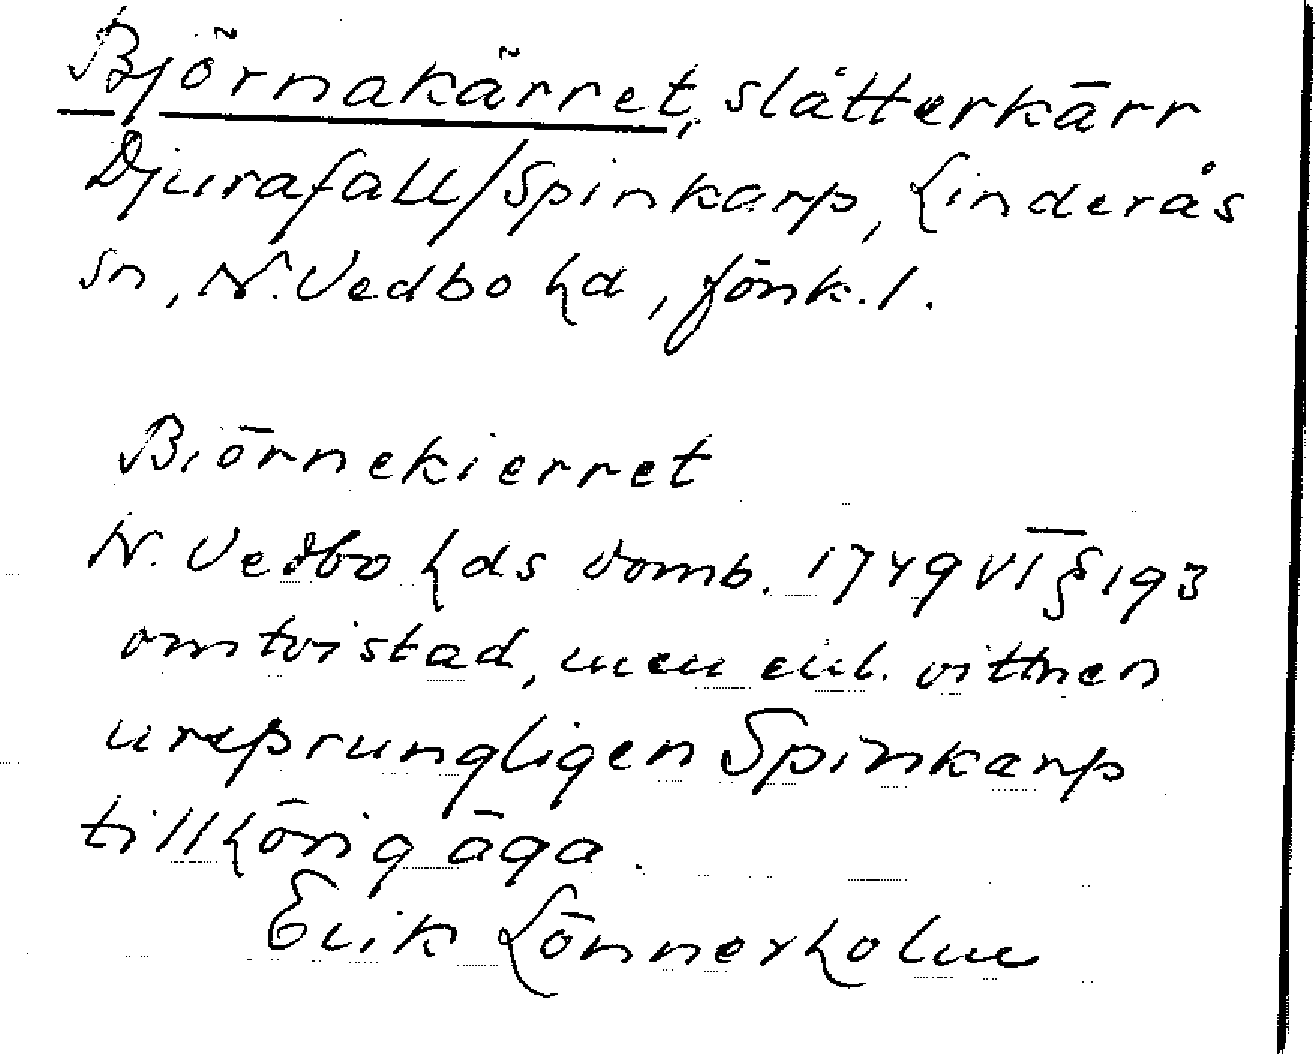 Björnakärret, slåtterkärr
Djurafall/Spinkarp, Linderås
sn, N. Vedbo hd, Jönk. l.
Biörnekierret
N. Vedbo hds domb. 1749 VI § 193
omtvistad, men enl. vittnen
ursprungligen Spinkarp
tillhörig äga.
Erik Lönnerholm